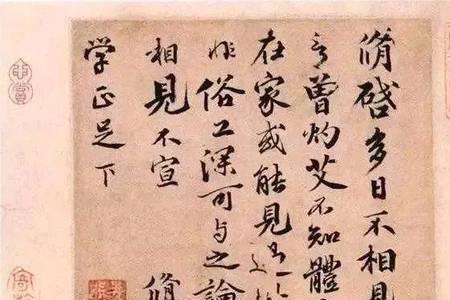 脩啓多日不相見
言曾灼艾不知體
在家或能見過
非俗工深可与之論
相見不宣 脩
学正足下